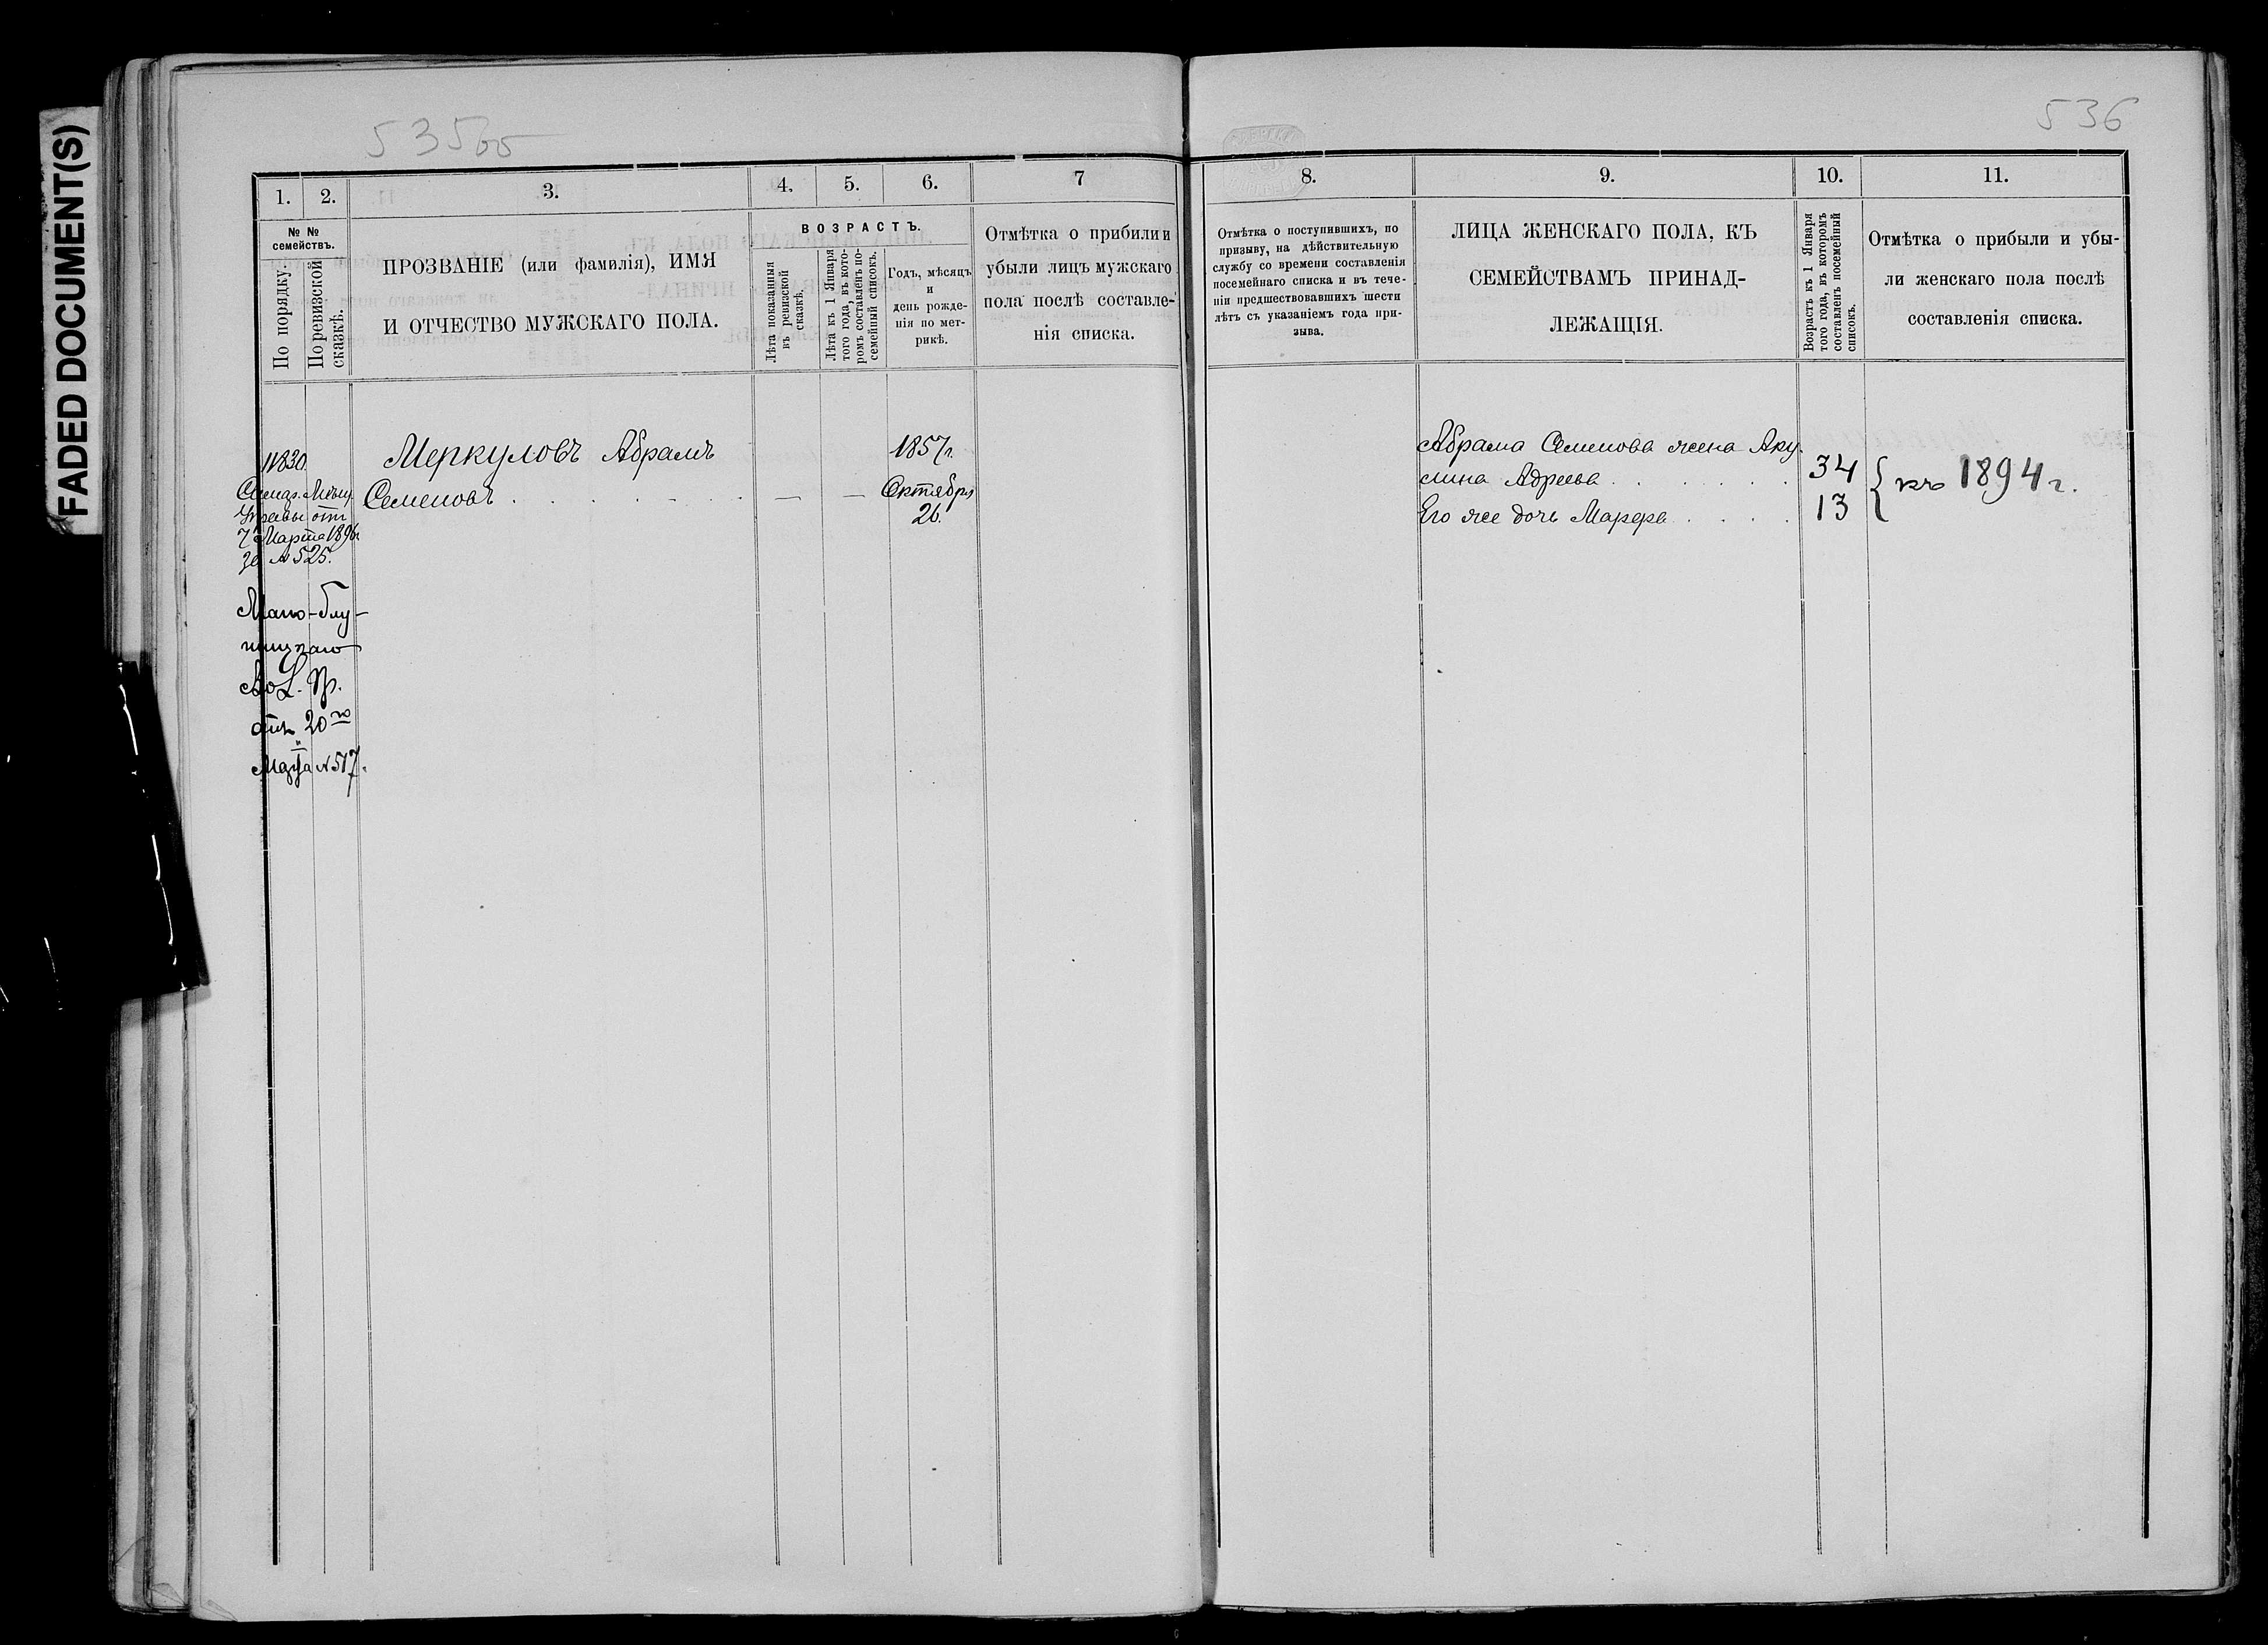 FADED DOCUMENT(S)
535об
536
1.
2.
3.
4.
5.
6.
7
8.
9.
10.
11.
№ №
семействъ.
По порядку.
По ревизской
сказкѣ.
ПРОЗВАНІЕ (или фамилія), ИМЯ
И ОТЧЕСТВО МУЖСКАГО ПОЛА.
ВОЗРАСТЪ.
Лѣта показанныя
въ ревизской
сказкѣ.
Лѣта къ 1 Января
того года, въ кото-
ромъ составленъ по-
семейный списокъ.
Годъ, мѣсяцъ
и
день рожде-
нія по мет-
рикѣ.
Отмѣтка о прибили и
убыли лицъ мужскаго
пола послѣ составле-
нія списка.
Отмѣтка о поступившихъ, по
призыву, на дѣйствительную
службу со времени составленія
посемейнаго списка и въ тече-
ніи предшествовавшихъ шести
лѣтъ съ указаніемъ года при-
зыва.
ЛИЦА ЖЕНСКАГО ПОЛА, КЪ
СЕМЕЙСТВАМЪ ПРИНАД-
ЛЕЖАЩІЯ.
Возрастъ къ 1 Января
того года, въ которомъ
составленъ посемейный
списокъ.
Отмѣтка о прибыли и убы-
ли женскаго пола послѣ
составленія списка.
Меркуловъ Абрамъ
Семеновъ . . . . . . — —
1857г.
Октября
26.
Управы отъ
7 Марта 1896г.
за №525.
Мало-Глу-
шицкаго
Вол. Пр.
отъ 20го
Марта №517.
Абрама Семенова жена Аку
лина Адреева . . . . . . 34
Его же дочь Марфа . . . . 13
къ 1894 г.